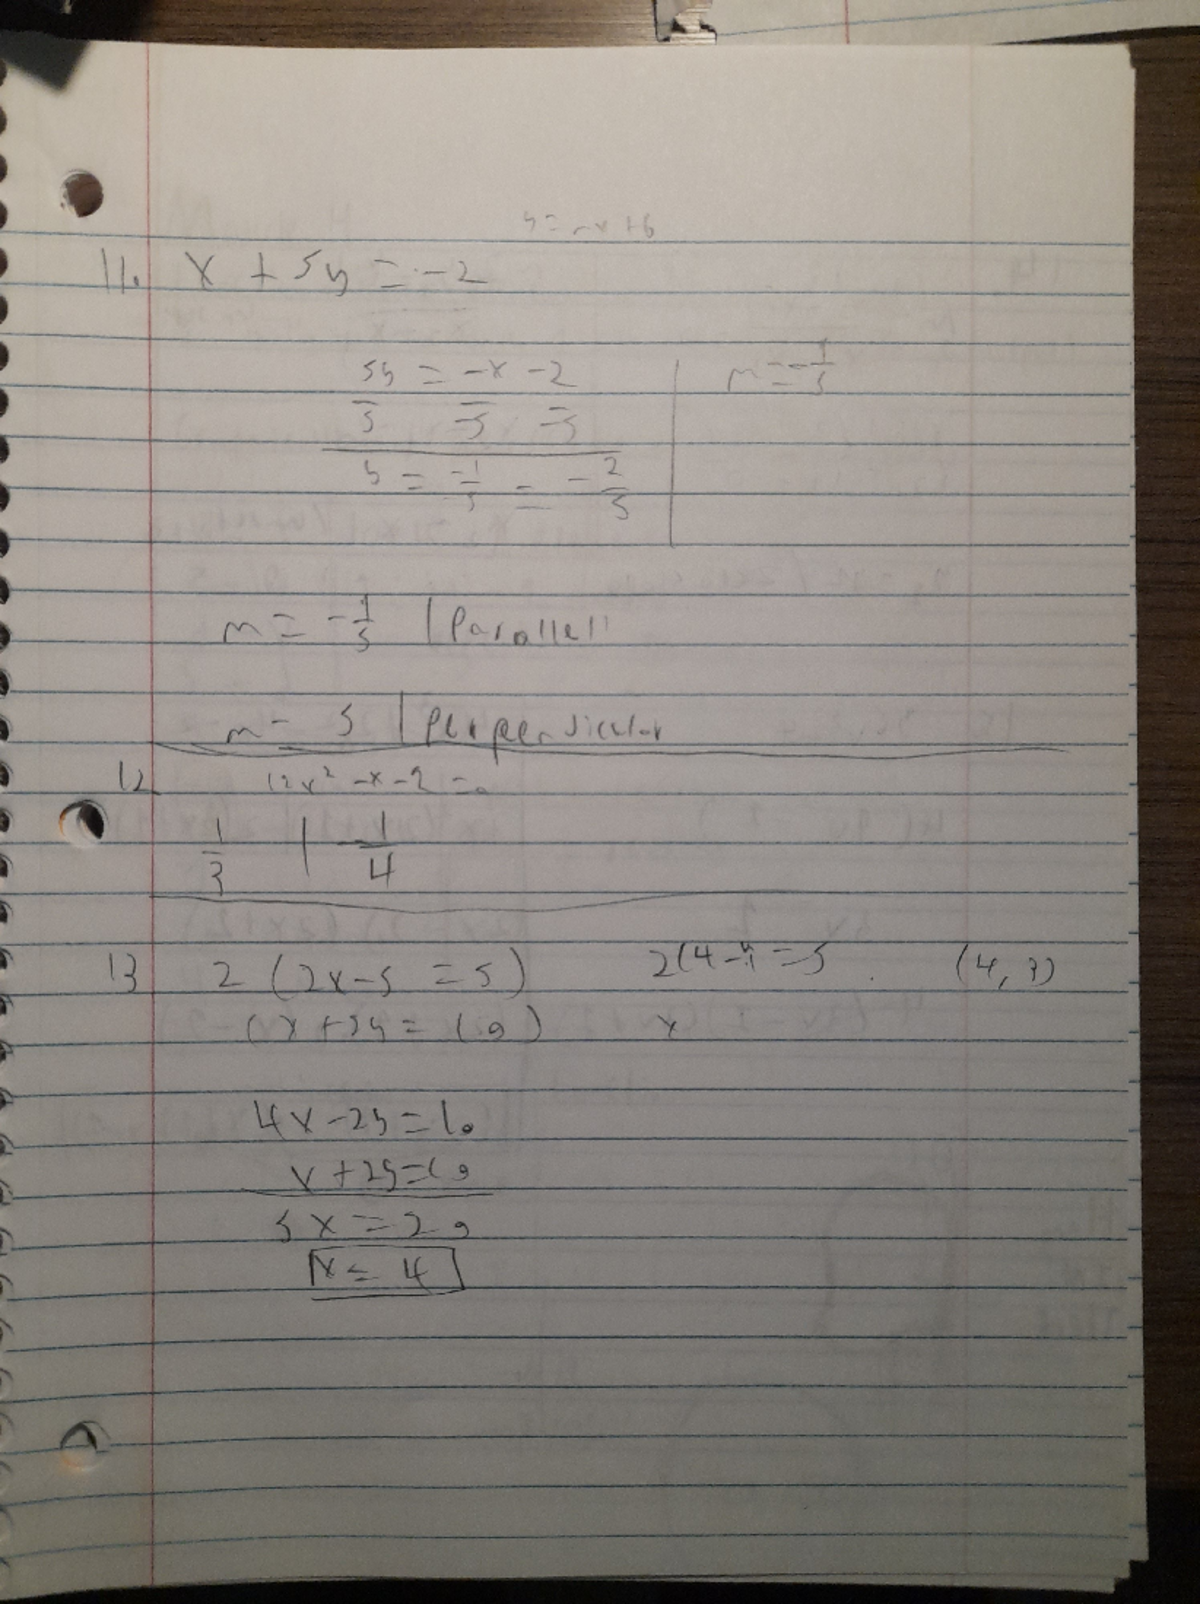 y = mx + b
11. x + 5y = -2
5y = -x - 2 | m = -1/5
5 -5 -5
y = -1/5 = -2/5
m = -1/5 | Parallell
m = 5 | Perpendicular
12 12x² - x - 2 = 0
1/3 | -1/4
13 2 (2x - 5 = 5) 2(4 - y = 5 (4, 3)
(x + 2y = 10) x
4x - 2y = 10
x + 2y = 10
5x = 20
x = 4